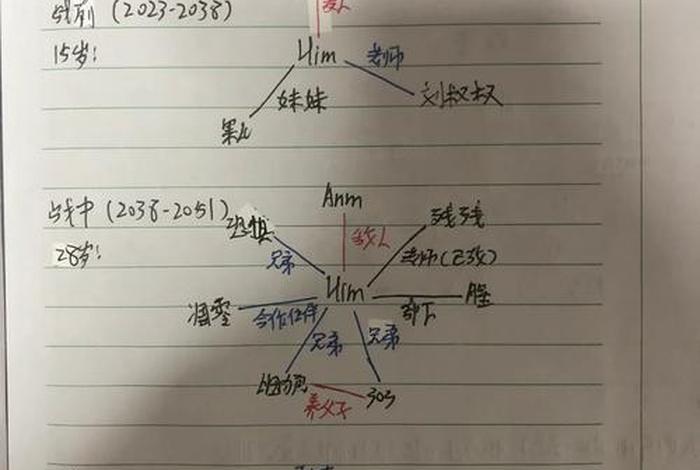 战前 (2023-2038)
敌人
15岁:
Him
老师
妹妹
刘叔叔
果儿
战中 (2038-2051)
Anm
残残
28岁:
敌人
老师(已故)
兄弟
Him
部下
合作伙伴
兄弟
兄弟
养父子
303